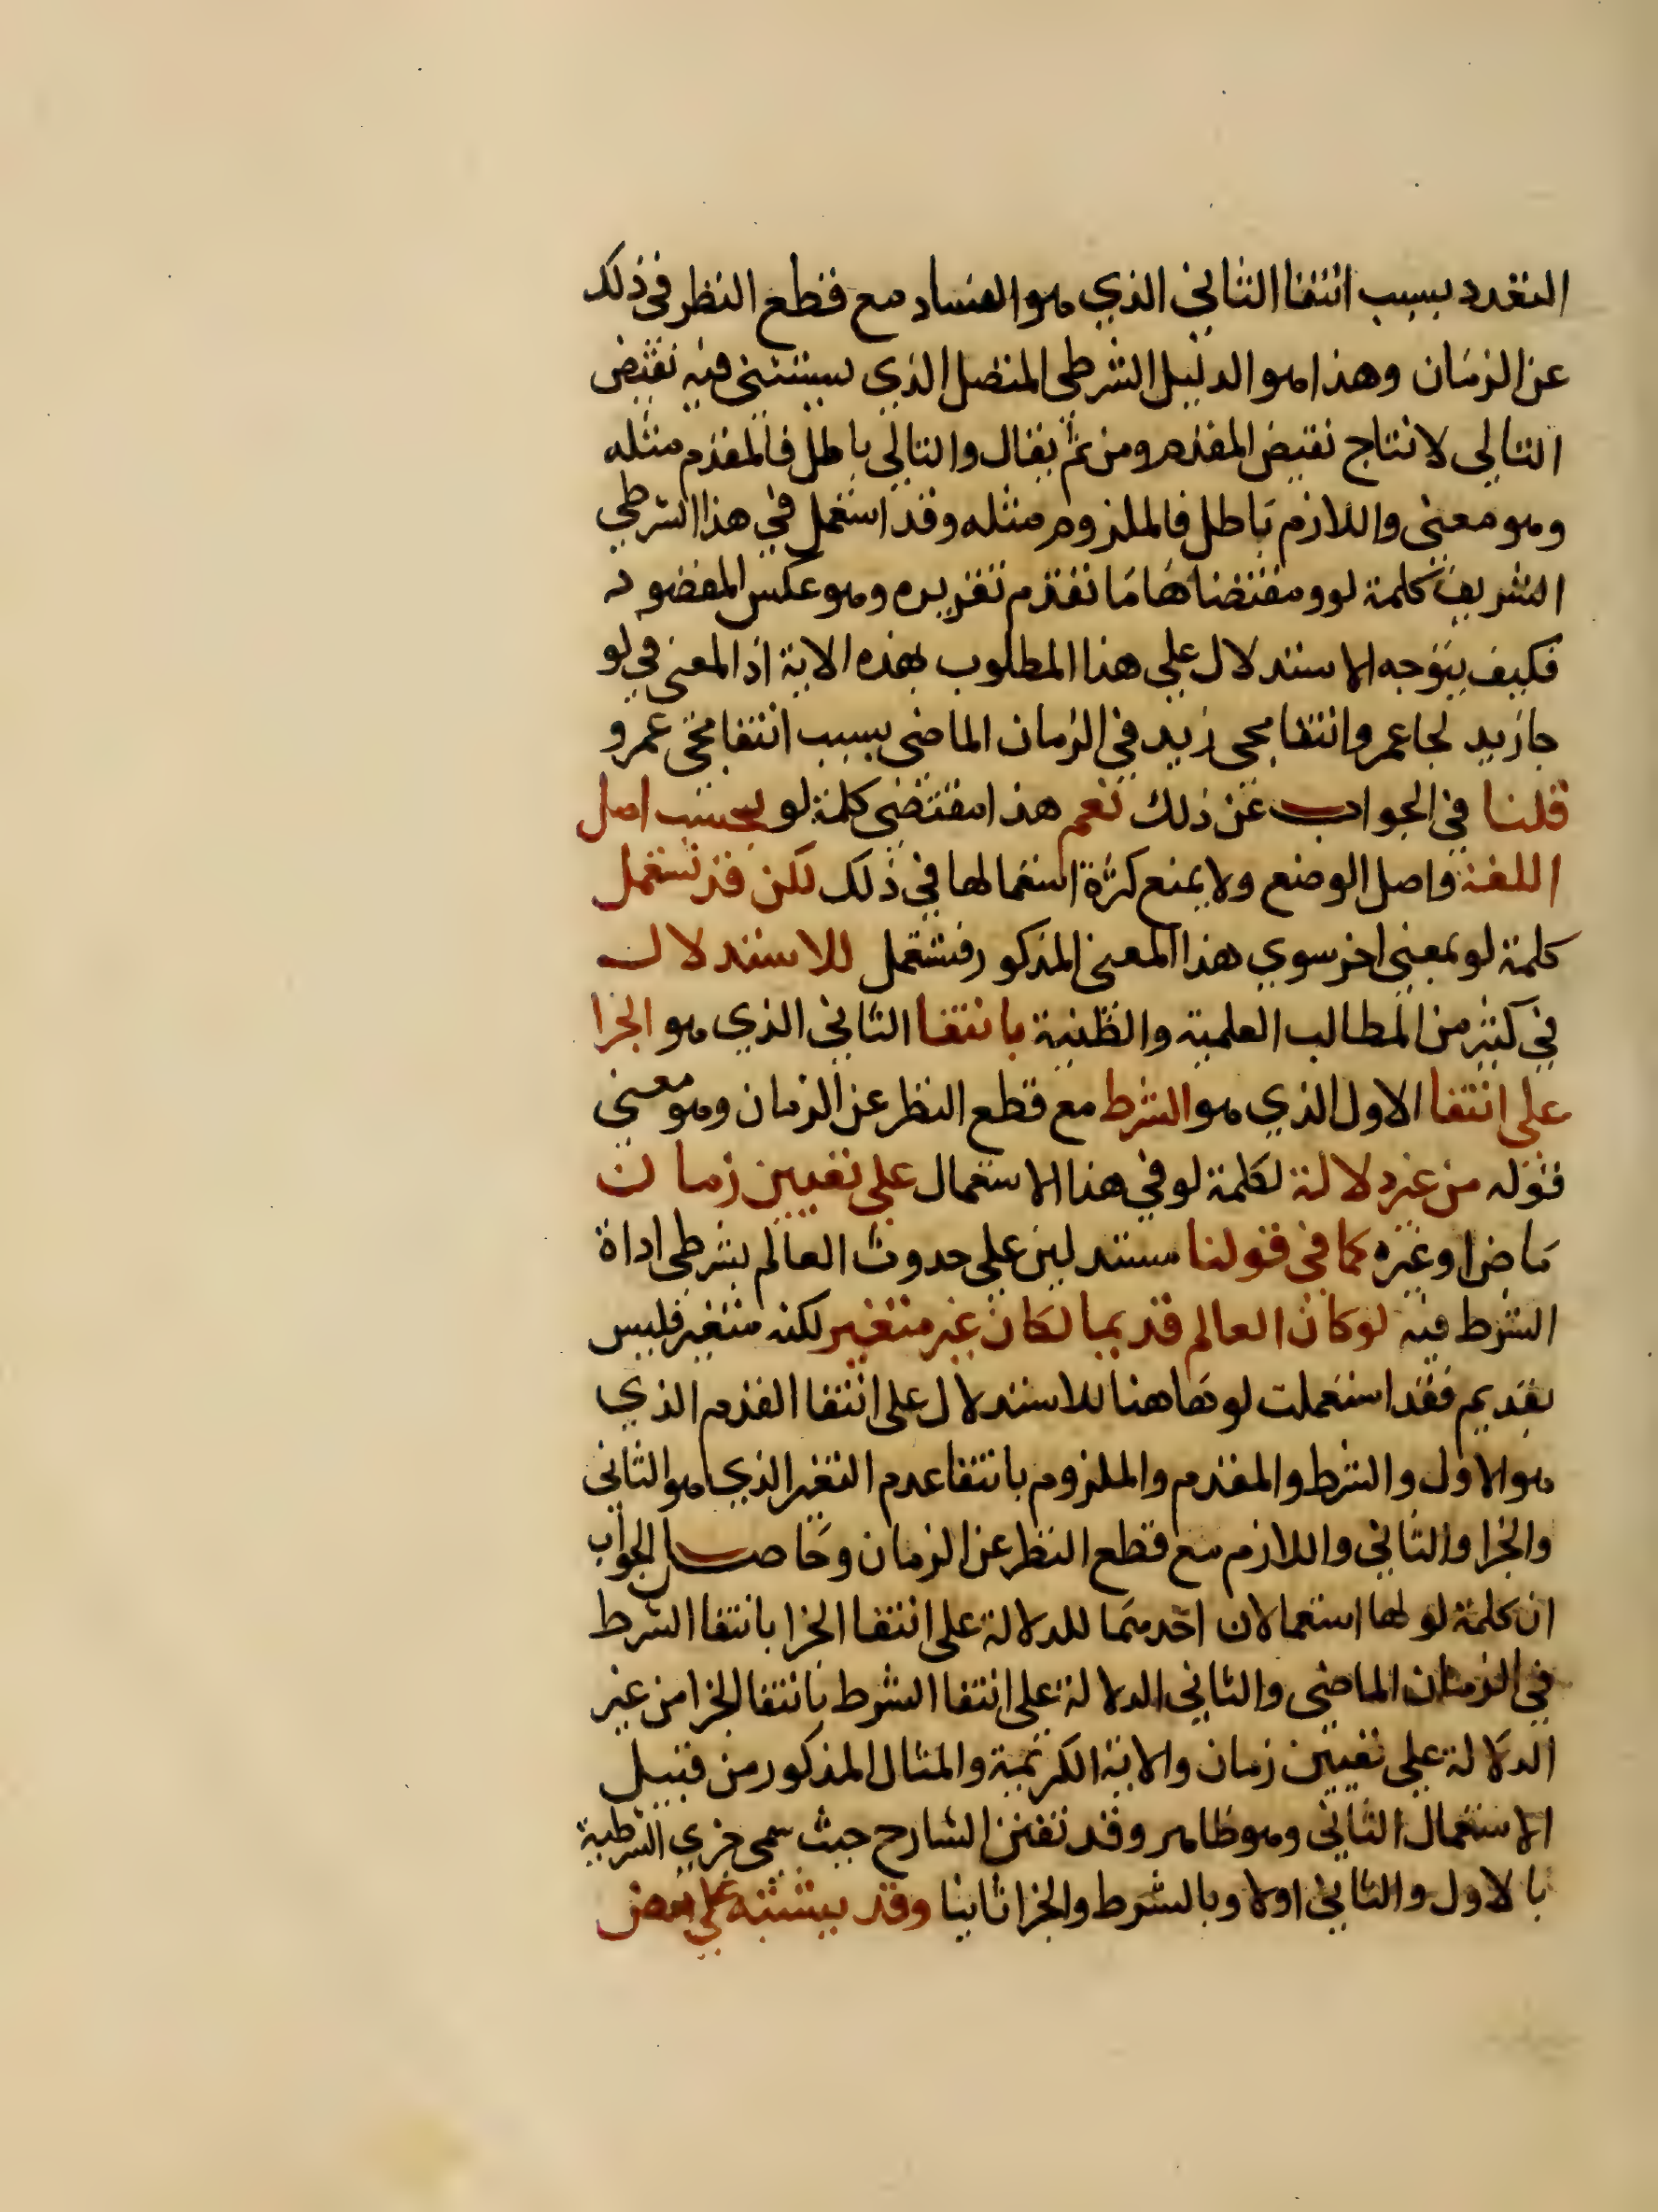 التعدد بسبب انتفا الثاني الذي هو الفساد مع قطع النظر في ذلك
عن الزمان وهذا هو الدليل الشرطي المتصل الذي يستثني فيه نقيض
التالي لانتاج نقيض المقدم ومن ثم يقال والتالي باطل فالمقدم مثله
وهو معني واللازم باطل فالملزوم مثله وقد استعمل في هذا الشرطي
الشريف كلمة لو ومقتضاها ما تقدم تقريره وهو عكس المقصود
فكيف يتوجه الاستدلال علي هذا المطلوب بهذه الاية اذ المعني في لو
جا زيد لجا عمرو انتفا مجي زيد في الزمان الماضي بسبب انتفا مجي عمرو
قلنا في الجواب عن ذلك نعم هذا مقتضي كلمة لو بحسب اصل
اللغة واصل الوضع ولا يمنع كثرة استعمالها في ذلك لكن قد تستعمل
كلمة لو بمعني اخر سوي هذا المعني المذكور فتستعمل للاستدلال
في كثير من المطالب العلمية والظنية بانتفا الثاني الذي هو الجزا
علي انتفا الاول الذي هو الشرط مع قطع النظر عن الزمان وهو معني
قوله من غير دلالة لكلمة لو في هذا الاستعمال علي تعيين زمان
ماض او غيره كما في قولنا مستدلين علي حدوث العالم بشرطي اداة
الشرط فيه لو كان العالم قديما لكان غير متغير لكنه متغير فليس
بقديم فقد استعملت لو هاهنا للاستدلال علي انتفا القدم الذي
هو الاول والشرط والمقدم والملزوم بانتفا عدم التغير الذي هو الثاني
والجزا والتالي واللازم مع قطع النظر عن الزمان وحاصل الجواب
ان كلمة لو لها استعمالان احدهما للدلالة علي انتفا الجزا بانتفا الشرط
في الزمان الماضي والثاني الدلالة علي انتفا الشرط بانتفا الجزا من غير
الدلالة علي تعيين زمان والاية الكريمة والمثال المذكور من قبيل
الاستعمال الثاني وهو ظاهر وقد تفنن الشارح حيث سمي جزي الشرطية
بالاول والثاني اولا وبالشرط والجزا ثانيا وقد يشتبه علي بعض